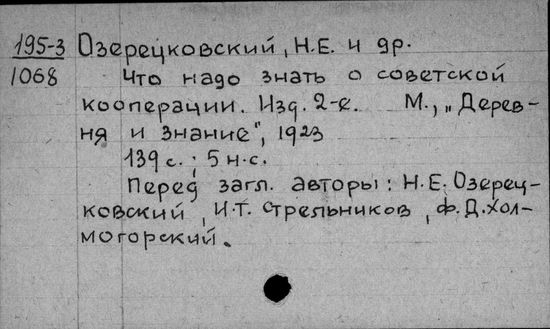 195-3 Озерецковский, Н.Е. и др.
1068 Что надо знать о советской
кооперации. Изд. 2-е. М., „Дерев-
ня и знание", 1923
139 с.; 5 н.с.
Перед загл. авторы: Н.Е. Озерец-
ковский, И.Т. Стрельников, Ф.Д. Хол-
могорский.